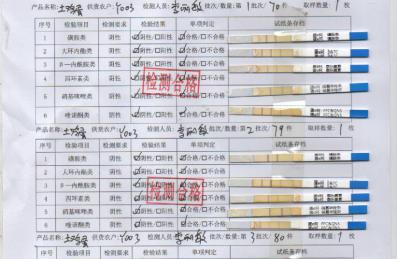 产品名称:土鸡蛋 供货农户:Y003 检测人员:李丽敏 批次/数量:第1批次/70件 取样数量:1枚
序号 检验项目 检测要求 检验结果 单项判定 试纸条存档
1 磺胺类 阴性 ☑阴性/□阳性 ☑合格/□不合格
2 大环内酯类 阴性 ☑阴性/□阳性 ☑合格/□不合格
3 β-内酰胺类 阴性 ☑阴性/□阳性 ☑合格/□不合格
4 四环素类 阴性 ☑阴性/□阳性 ☑合格/□不合格
5 硝基呋喃类 阴性 ☑阴性/□阳性 ☑合格/□不合格
6 喹诺酮类 阴性 ☑阴性/□阳性 ☑合格/□不合格
检测合格
产品名称:土鸡蛋 供货农户:Y003 检测人员:李丽敏 批次/数量:第2批次/79件 取样数量:1枚
序号 检验项目 检测要求 检验结果 单项判定 试纸条存档
1 磺胺类 阴性 ☑阴性/□阳性 ☑合格/□不合格
2 大环内酯类 阴性 ☑阴性/□阳性 ☑合格/□不合格
3 β-内酰胺类 阴性 ☑阴性/□阳性 ☑合格/□不合格
4 四环素类 阴性 ☑阴性/□阳性 ☑合格/□不合格
5 硝基呋喃类 阴性 ☑阴性/□阳性 ☑合格/□不合格
6 喹诺酮类 阴性 ☑阴性/□阳性 ☑合格/□不合格
检测合格
产品名称:土鸡蛋 供货农户:Y003 检测人员:李丽敏 批次/数量:第3批次/80件 取样数量:1枚
序号 检验项目 检测要求 检验结果 单项判定 试纸条存档